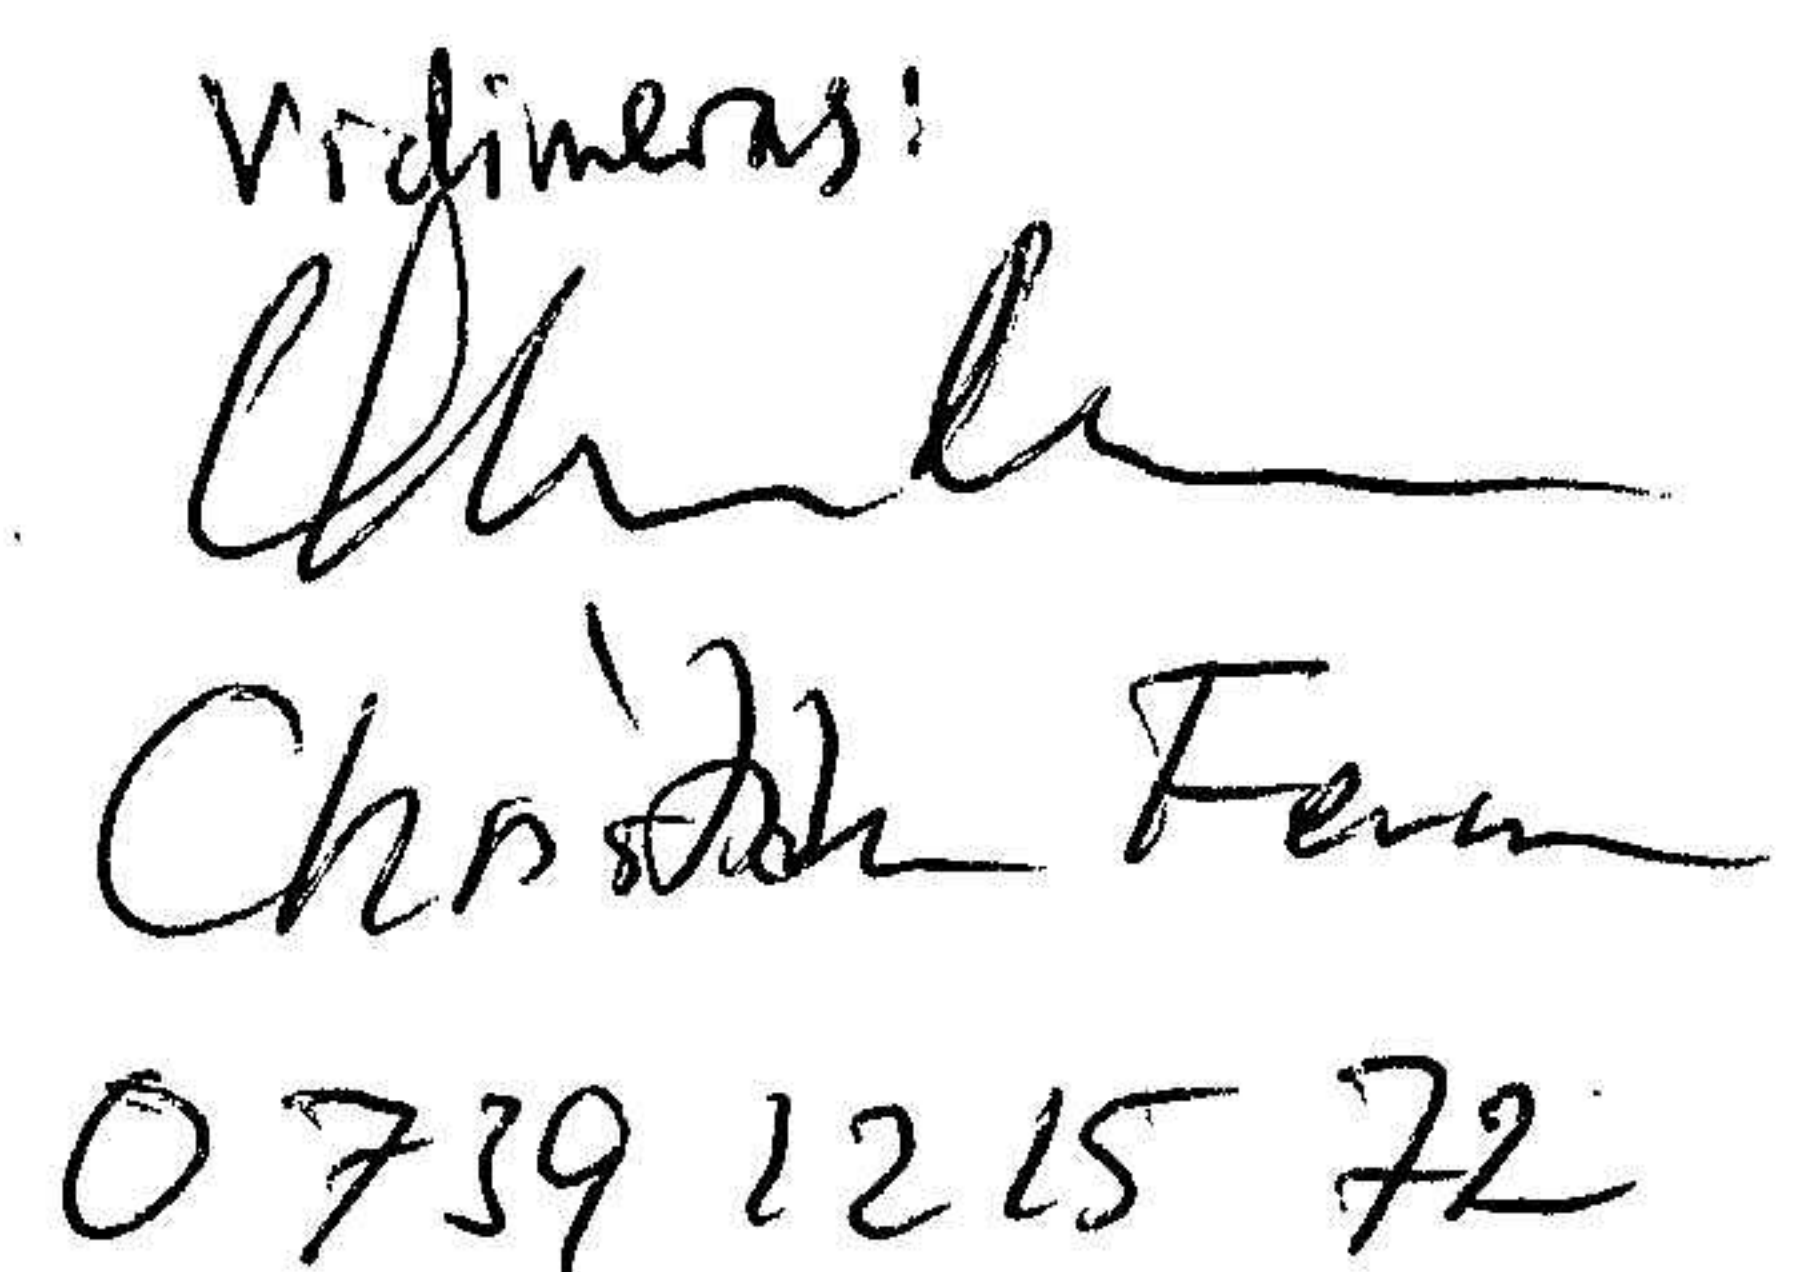 Vidimeras:
Christian Fenn
0739 12 15 72